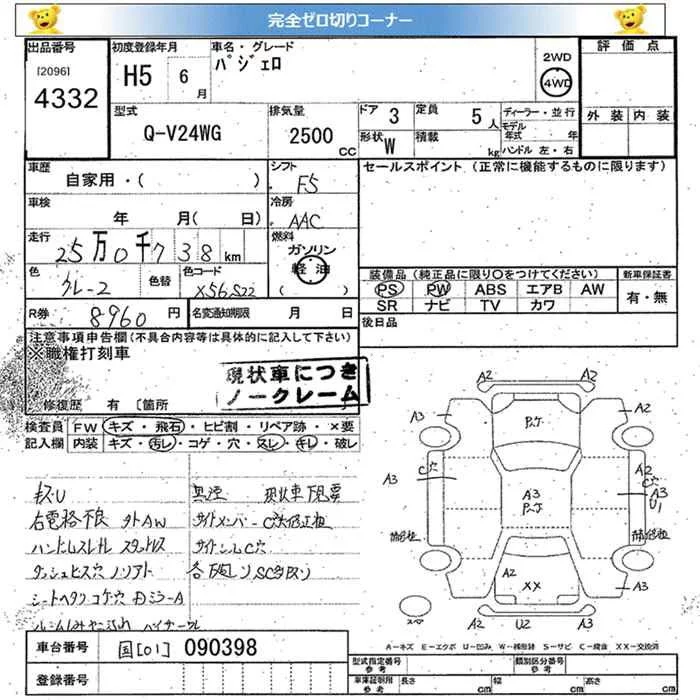 完全ゼロ切りコーナー
出品番号
[2096]
4332
初度登録年月
H5 6月
車名・グレード
パジェロ
2WD
4WD
評価点
外装 内装
型式
Q-V24WG
排気量
2500 CC
ドア 3
定員 5人
形状 W
積載 kg
ディーラー・並行
モデル年式 年
ハンドル 左・右
車歴
自家用・( )
シフト
F5
セールスポイント (正常に機能するものに限ります)
車検
年 月( 日)
冷房
AAC
走行
25万0千738km
燃料
ガソリン
軽油
( )
色
グレー2
色替
色コード
X56,S22
装備品 (純正品に限り○をつけてください)
PS PW ABS エアB AW
SR ナビ TV カワ
新車保証書
有・無
R券 8960円
名変通知期限 月 日
後日品
注意事項申告欄(不具合内容等は具体的に記入して下さい)
※職権打刻車
現状車につき
ノークレーム
修復歴 有 [箇所
検査員記入欄
FW キズ・飛石・ヒビ割・リペア跡・×要
内装 キズ・汚レ・コゲ・穴・スレ・キレ・破レ
キズU
右電格不良 外AW
ハンドルスレキレ スタットレス
ダッシュヒズ穴 ノリアト
シートヘタリコゲ穴
現状車下見要
サイドシルC穴
A2 A2
A3 A2
P.ケ
A3 C穴
A3
P.ケ
A2
C穴
A3
U1
A2
XX
A3 A3
A2 U2 A2
スペア
A-キズ E-エクボ U-凹み W-補修跡 S-サビ C-腐食 XX-交換済
車台番号
国[01] 090398
登録番号
型式指定番号
参考
類別区分番号
参考
車庫証明用
参考
長さ cm
幅 cm
高さ cm